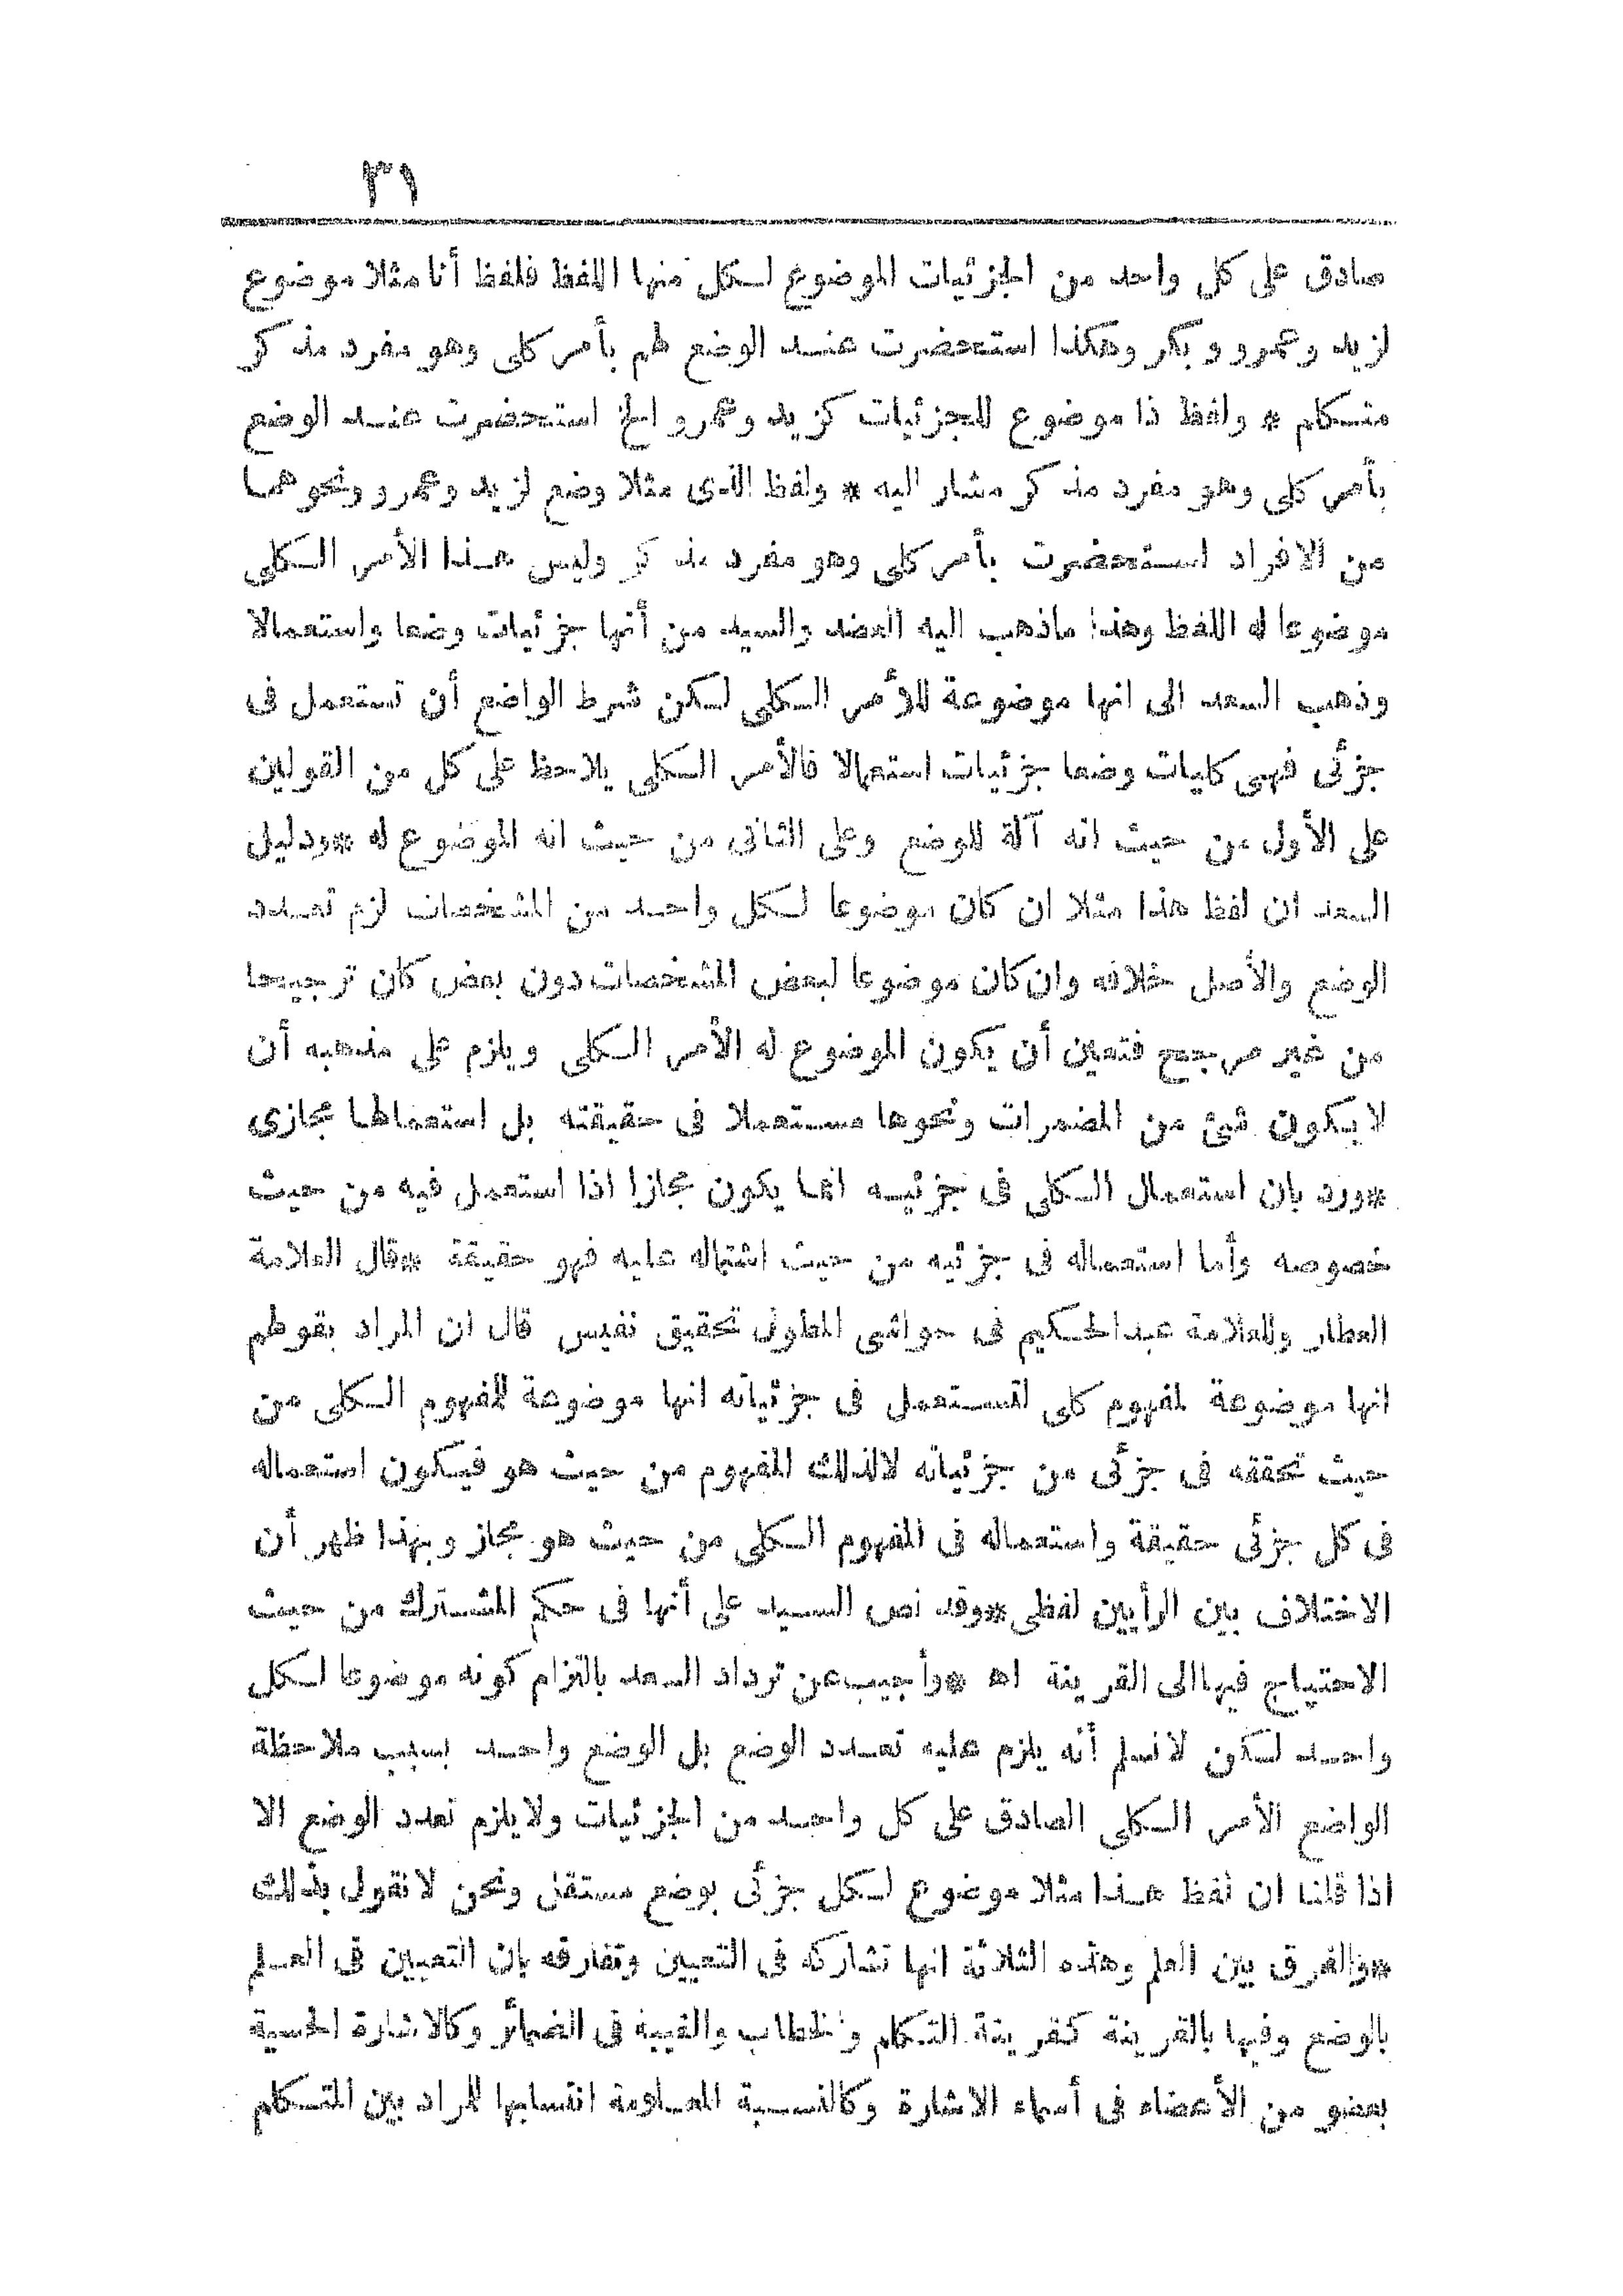 ٣١
صادق على كل واحد من الجزئيات الموضوع لكل منها اللفظ فلفظ أنا مثلا موضوع
لزيد وعمرو وبكر وهكذا استحضرت عند الوضع لهم بأمر كلى وهو مفرد مذكر
متكلم * ولفظ ذا موضوع للجزئيات كزيد وعمرو الخ استحضرت عند الوضع
بأمر كلى وهو مفرد مذكر مشار اليه * ولفظ الذى مثلا وضع لزيد وعمرو ونحوهما
من الافراد استحضرت بأمر كلى وهو مفرد مذكر وليس هذا الأمر الكلى
موضوعا له اللفظ وهذا ماذهب اليه العضد والسيد من أنها جزئيات وضعا واستعمالا
وذهب السعد الى انها موضوعة للأمر الكلى لكن شرط الواضع أن تستعمل فى
جزئى فهى كليات وضعا جزئيات استعمالا فالأمر الكلى يلاحظ على كل من القولين
على الأول من حيث انه آلة للوضع وعلى الثانى من حيث انه الموضوع له *ودليل
السعد ان لفظ هذا مثلا ان كان موضوعا لكل واحد من المشخصات لزم تعدد
الوضع والأصل خلافه وان كان موضوعا لبعض المشخصات دون بعض كان ترجيحا
من غير مرجح فتعين أن يكون الموضوع له الأمر الكلى ويلزم على مذهبه أن
لا يكون شئ من المضمرات ونحوها مستعملا فى حقيقته بل استعمالها مجازى
*ورد بان استعمال الكلى فى جزئيه انما يكون مجازا اذا استعمل فيه من حيث
خصوصه وأما استعماله فى جزئيه من حيث اشتماله عليه فهو حقيقة *قال العلامة
العطار وللعلامة عبدالحكيم فى حواشى المطول تحقيق نفيس قال ان المراد بقولهم
انها موضوعة لمفهوم كلى لتستعمل فى جزئياته انها موضوعة للمفهوم الكلى من
حيث تحققه فى جزئى من جزئياته لالذلك المفهوم من حيث هو فيكون استعماله
فى كل جزئى حقيقة واستعماله فى المفهوم الكلى من حيث هو مجاز وبهذا ظهر أن
الاختلاف بين الرأيين لفظى *وقد نص السيد على أنها فى حكم المشترك من حيث
الاحتياج فيها الى القرينة اه *وأجيب عن ترداد السعد بالتزام كونه موضوعا لكل
واحد لكن لانسلم أنه يلزم عليه تعدد الوضع بل الوضع واحد بسبب ملاحظة
الواضع الأمر الكلى الصادق على كل واحد من الجزئيات ولا يلزم تعدد الوضع الا
اذا قلنا ان لفظ هذا مثلا موضوع لكل جزئى بوضع مستقل ونحن لانقول بذلك
*والفرق بين العلم وهذه الثلاثة انها تشاركه فى التعيين وتفارقه بان التعيين فى العلم
بالوضع وفيها بالقرينة كقرينة التكلم والخطاب والغيبة فى الضمائر وكالاشارة الحسية
بعضو من الأعضاء فى أسماء الاشارة وكالنسبة المعلومة انتسابها للمراد بين المتكلم